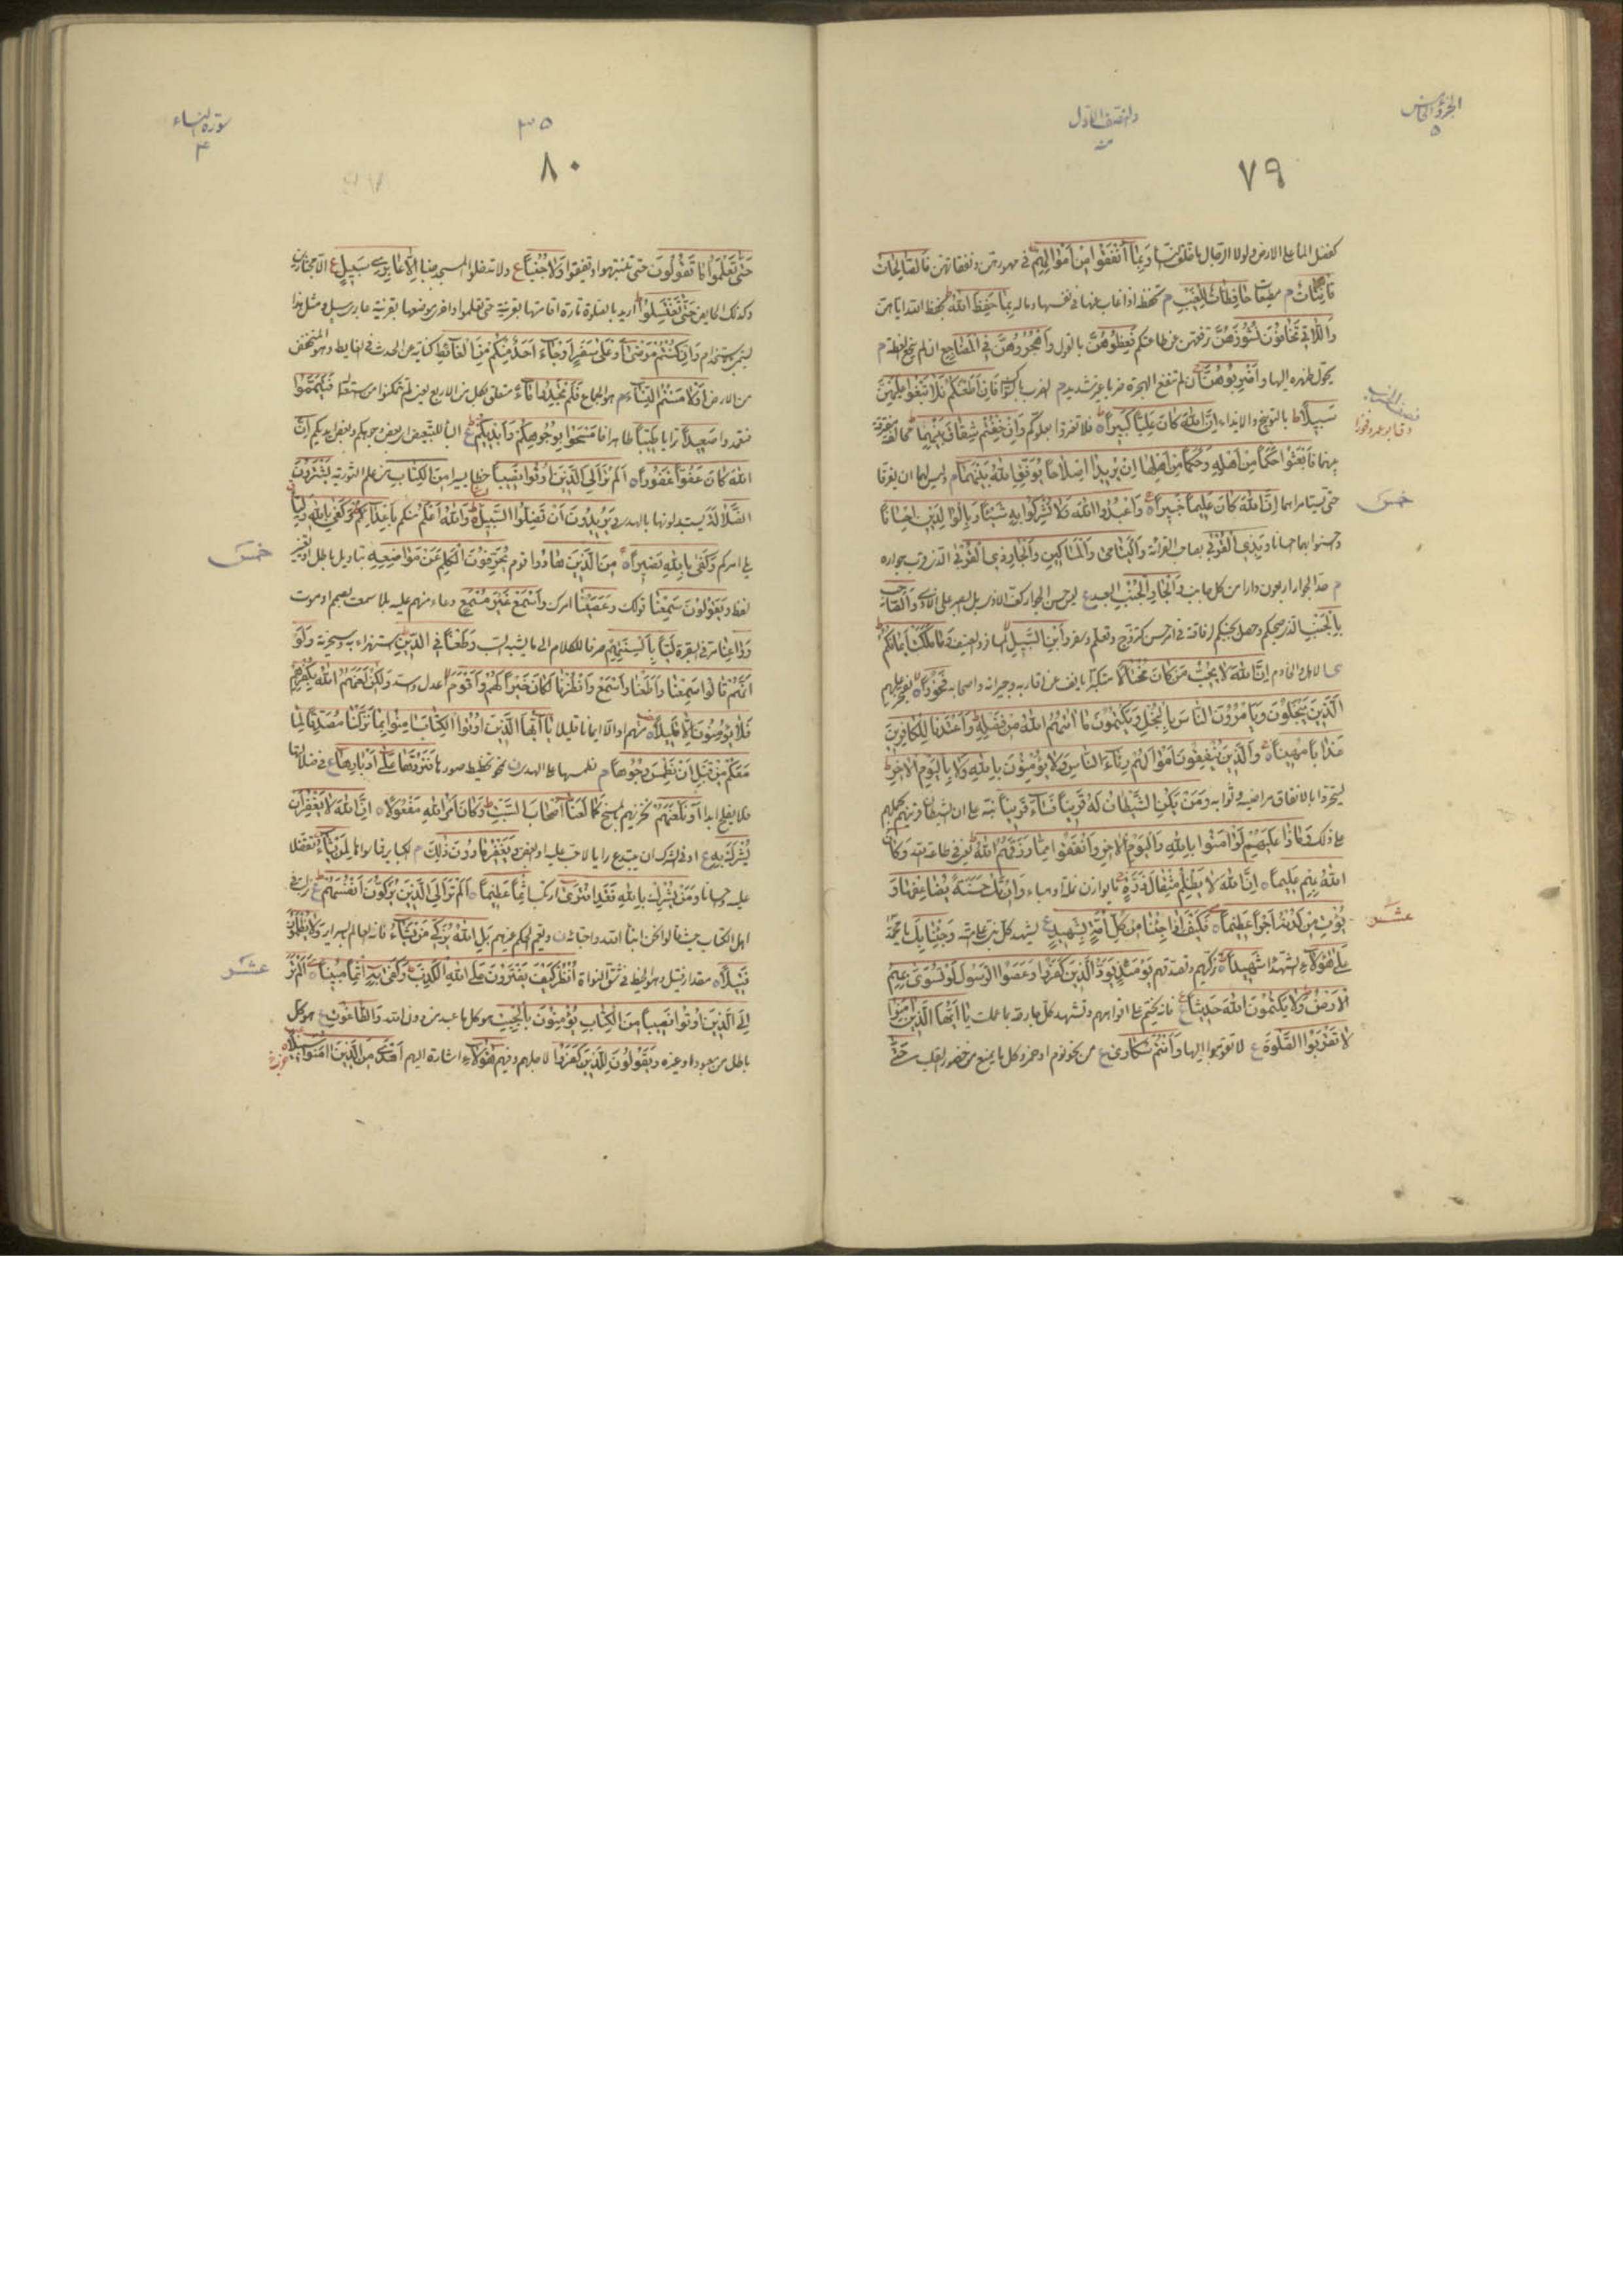 الجزء الخامس
٥
والنصف الاول
منه
٧٩
كفضل الماء على الارض ولولا الرجال ما خلقت النساء وَبِمٰا اَنْفَقُوا مِنْ اَمْوٰالِهِمْ في مهورهن ونفقاتهن فَالصّٰالِحٰاتُ
قٰانِتٰاتٌ م مطيعات حٰافِظٰاتٌ لِلْغَيْبِ م تحفظه اذا غاب عنها في نفسها وماله بِمٰا حَفِظَ اللّٰهُ بحفظ الله اياهن
وَاللّٰاتي تَخٰافُونَ نُشُوزَهُنَّ ترفعهن عن طاعتكم فَعِظُوهُنَّ بالقول وَاهْجُرُوهُنَّ فِي الْمَضٰاجِعِ ان لم تنجع العظة م
يحول ظهره اليها وَاضْرِبُوهُنَّ ان لم تنفع الهجرة ضربا غير شديد م الضرب بالسواك فَاِنْ اَطَعْنَكُمْ فَلٰا تَبْغُوا عَلَيْهِنَّ
سَبيلًا بالتوبيخ والايذاء اِنَّ اللّٰهَ كٰانَ عَلِيًّا كَبيراً فلا تغتروا بعلوكم وَاِنْ خِفْتُمْ شِقٰاقَ بَيْنِهِمٰا مخالفة مفرقة
بينهما فَابْعَثُوا حَكَماً مِنْ اَهْلِهِ وَحَكَماً مِنْ اَهْلِهٰا اِنْ يُريدٰا اِصْلٰاحاً يُوَفِّقِ اللّٰهُ بَيْنَهُمٰا م وليس لهما ان يفرقا
حتى يستامراهما اِنَّ اللّٰهَ كٰانَ عَليماً خَبيراً وَاعْبُدُوا اللّٰهَ وَلٰا تُشْرِكُوا بِهِ شَيْئاً وَبِالْوٰالِدَيْنِ اِحْسٰاناً
خمس
واحسنوا بهما احسانا وَبِذِي الْقُرْبىٰ بصاحب القرابة وَالْيَتٰامىٰ وَالْمَسٰاكينِ وَالْجٰارِ ذِي الْقُرْبىٰ الذي قرب جواره
م حد الجوار اربعون دارا من كل جانب وَالْجٰارِ الْجُنُبِ البعيد ع ليس حسن الجوار كف الاذى بل الصبر على الاذى وَالصّٰاحِبِ
بِالْجَنْبِ الذي صحبكم وحصل بجنبكم لرفاقة في امر حسن كتزوج وتعلم وسفر وَابْنِ السَّبيلِ المسافر والضيف وَمٰا مَلَكَتْ اَيْمٰانُكُمْ
الاهل والخادم اِنَّ اللّٰهَ لٰا يُحِبُّ مَنْ كٰانَ مُخْتٰالًا متكبرا يانف عن اقاربه وجيرانه واصحابه فَخُوراً يفخر عليهم
اَلَّذينَ يَبْخَلُونَ وَيَأْمُرُونَ النّٰاسَ بِالْبُخْلِ وَيَكْتُمُونَ مٰا اٰتٰيهُمُ اللّٰهُ مِنْ فَضْلِهِ وَاَعْتَدْنٰا لِلْكٰافِرينَ
عَذٰاباً مُهيناً وَالَّذينَ يُنْفِقُونَ اَمْوٰالَهُمْ رِئٰاءَ النّٰاسِ وَلٰا يُؤْمِنُونَ بِاللّٰهِ وَلٰا بِالْيَوْمِ الْاٰخِرِ
ليتحروا بالانفاق مراضيه وثوابه وَمَنْ يَكُنِ الشَّيْطٰانُ لَهُ قَريناً فَسٰاءَ قَريناً نبه على ان الشيطان قرينهم يحملهم
على ذلك وَمٰاذٰا عَلَيْهِمْ لَوْ اٰمَنُوا بِاللّٰهِ وَالْيَوْمِ الْاٰخِرِ وَاَنْفَقُوا مِمّٰا رَزَقَهُمُ اللّٰهُ يعني في طاعته وَكٰانَ
اللّٰهُ بِهِمْ عَليماً اِنَّ اللّٰهَ لٰا يَظْلِمُ مِثْقٰالَ ذَرَّةٍ ما يوازن نملة او هباء وَاِنْ تَكُ حَسَنَةً يُضٰاعِفْهٰا وَ
يُؤْتِ مِنْ لَدُنْهُ اَجْراً عَظيماً فَكَيْفَ اِذٰا جِئْنٰا مِنْ كُلِّ اُمَّةٍ بِشَهيدٍ ع يشهد كل نبي على امته وَجِئْنٰا بِكَ يا محمد
عشر
عَلىٰ هٰؤُلٰاءِ الشهداء شَهيداً تزكيهم وتصدقهم يَوْمَئِذٍ يَوَدُّ الَّذينَ كَفَرُوا وَعَصَوُا الرَّسُولَ لَوْ تُسَوّىٰ بِهِمُ
الْاَرْضُ وَلٰا يَكْتُمُونَ اللّٰهَ حَديثاً ع فانه يختم على افواههم وتشهد كل جارحة بما عملت يٰا اَيُّهَا الَّذينَ اٰمَنُوا
لٰا تَقْرَبُوا الصَّلٰوةَ ع لا تقوموا اليها وَاَنْتُمْ سُكٰارىٰ ع من نحو نوم او خمر وكل ما يمنع من حضور القلب حَتّىٰ
سورة النساء
۴
٣٥
٨٠
حَتّىٰ تَعْلَمُوا مٰا تَقُولُونَ حتى تنتبهوا وتفيقوا وَلٰا جُنُباً ع ولا تدخلوا المسجد جنبا اِلّٰا عٰابِري سَبيلٍ ع الا مجتازين
وكذلك الحايض حَتّىٰ تَغْتَسِلُوا اريد بالصلوة تارة اقامتها بقرينة حتى تعلموا واخرى موضعها بقرينة عابري سبيل ومثل هذا
ليسمى استخدام وَاِنْ كُنْتُمْ مَرْضىٰ اَوْ عَلىٰ سَفَرٍ اَوْ جٰاءَ اَحَدٌ مِنْكُمْ مِنَ الْغٰائِطِ كناية عن الحدث اذ الغايط وهو المنخفض
من الارض اَوْ لٰامَسْتُمُ النِّسٰاءَ م هو الجماع فَلَمْ تَجِدُوا مٰاءً متعلق بكل من الاربع يعني لم تتمكنوا من استعماله فَتَيَمَّمُوا
فتعمدوا صَعيداً ترابا طَيِّباً طاهرا فَامْسَحُوا بِوُجُوهِكُمْ وَاَيْديكُمْ ع الباء للتبعيض اي بعض وجوهكم وبعض ايديكم اِنَّ
اللّٰهَ كٰانَ عَفُوًّا غَفُوراً اَلَمْ تَرَ اِلَى الَّذينَ اُوتُوا نَصيباً حظا يسيرا مِنَ الْكِتٰابِ من علم التورية يَشْتَرُونَ
الضَّلٰالَةَ يستبدلونها بالهدى وَيُريدُونَ اَنْ تَضِلُّوا السَّبيلَ وَاللّٰهُ اَعْلَمُ منكم بِاَعْدٰائِكُمْ وَكَفىٰ بِاللّٰهِ وَلِيًّا
يلي امركم وَكَفىٰ بِاللّٰهِ نَصيراً مِنَ الَّذينَ هٰادُوا قوم يُحَرِّفُونَ الْكَلِمَ عَنْ مَوٰاضِعِهِ بتاويل باطل او تغيير
خمس
لفظ وَيَقُولُونَ سَمِعْنٰا قولك وَعَصَيْنٰا امرك وَاسْمَعْ غَيْرَ مُسْمَعٍ دعاء منهم عليه بلا سمعت لصمم او موت
وَرٰاعِنٰا مر في البقرة لَيّاً بِاَلْسِنَتِهِمْ صرفا للكلام الى ما يشبه السب وَطَعْناً فِي الدّينِ استهزاء به وسخرية وَلَوْ
اَنَّهُمْ قٰالُوا سَمِعْنٰا وَاَطَعْنٰا وَاسْمَعْ وَانْظُرْنٰا لَكٰانَ خَيْراً لَهُمْ وَاَقْوَمَ اعدل واسد وَلٰكِنْ لَعَنَهُمُ اللّٰهُ بِكُفْرِهِمْ
فَلٰا يُؤْمِنُونَ اِلّٰا قَليلًا منهم او الا ايمانا قليلا يٰا اَيُّهَا الَّذينَ اُوتُوا الْكِتٰابَ اٰمِنُوا بِمٰا نَزَّلْنٰا مُصَدِّقاً لِمٰا
مَعَكُمْ مِنْ قَبْلِ اَنْ نَطْمِسَ وُجُوهاً م نطمسها عن الهدى نحو تخطيط صورها فَنَرُدَّهٰا عَلىٰ اَدْبٰارِهٰا ع في ضلالتها
فلا يفلح ابدا اَوْ نَلْعَنَهُمْ نخزيهم بالمسخ كَمٰا لَعَنّٰا اَصْحٰابَ السَّبْتِ وَكٰانَ اَمْرُ اللّٰهِ مَفْعُولًا اِنَّ اللّٰهَ لٰا يَغْفِرُ اَنْ
يُشْرَكَ بِهِ ع ادنى الشرك ان يبتدع رايا لاحب عليه او ابغض وَيَغْفِرُ مٰا دُونَ ذٰلِكَ م الكباير فما سواها لِمَنْ يَشٰاءُ تفضلا
عليه واحسانا وَمَنْ يُشْرِكْ بِاللّٰهِ فَقَدِ افْتَرىٰ ارتكب اِثْماً عَظيماً اَلَمْ تَرَ اِلَى الَّذينَ يُزَكُّونَ اَنْفُسَهُمْ ع نزلت في
اهل الكتاب حيث قالوا نحن ابناء الله واحباؤه وتعم الحكم غيرهم بَلِ اللّٰهُ يُزَكّي مَنْ يَشٰاءُ فانه العالم بالسراير وَلٰا يُظْلَمُونَ
فَتيلًا مقدار فتيل وهو الخيط في شق النواة اُنْظُرْ كَيْفَ يَفْتَرُونَ عَلَى اللّٰهِ الْكَذِبَ وَكَفىٰ بِهِ اِثْماً مُبيناً اَلَمْ تَرَ
عشر
اِلَى الَّذينَ اُوتُوا نَصيباً مِنَ الْكِتٰابِ يُؤْمِنُونَ بِالْجِبْتِ هو كل ما عبد من دون الله وَالطّٰاغُوتِ ع هو كل
باطل من معبود او غيره وَيَقُولُونَ لِلَّذينَ كَفَرُوا لاجلهم وفيهم هٰؤُلٰاءِ اشارة اليهم اَهْدىٰ مِنَ الَّذينَ اٰمَنُوا سَبيلًا